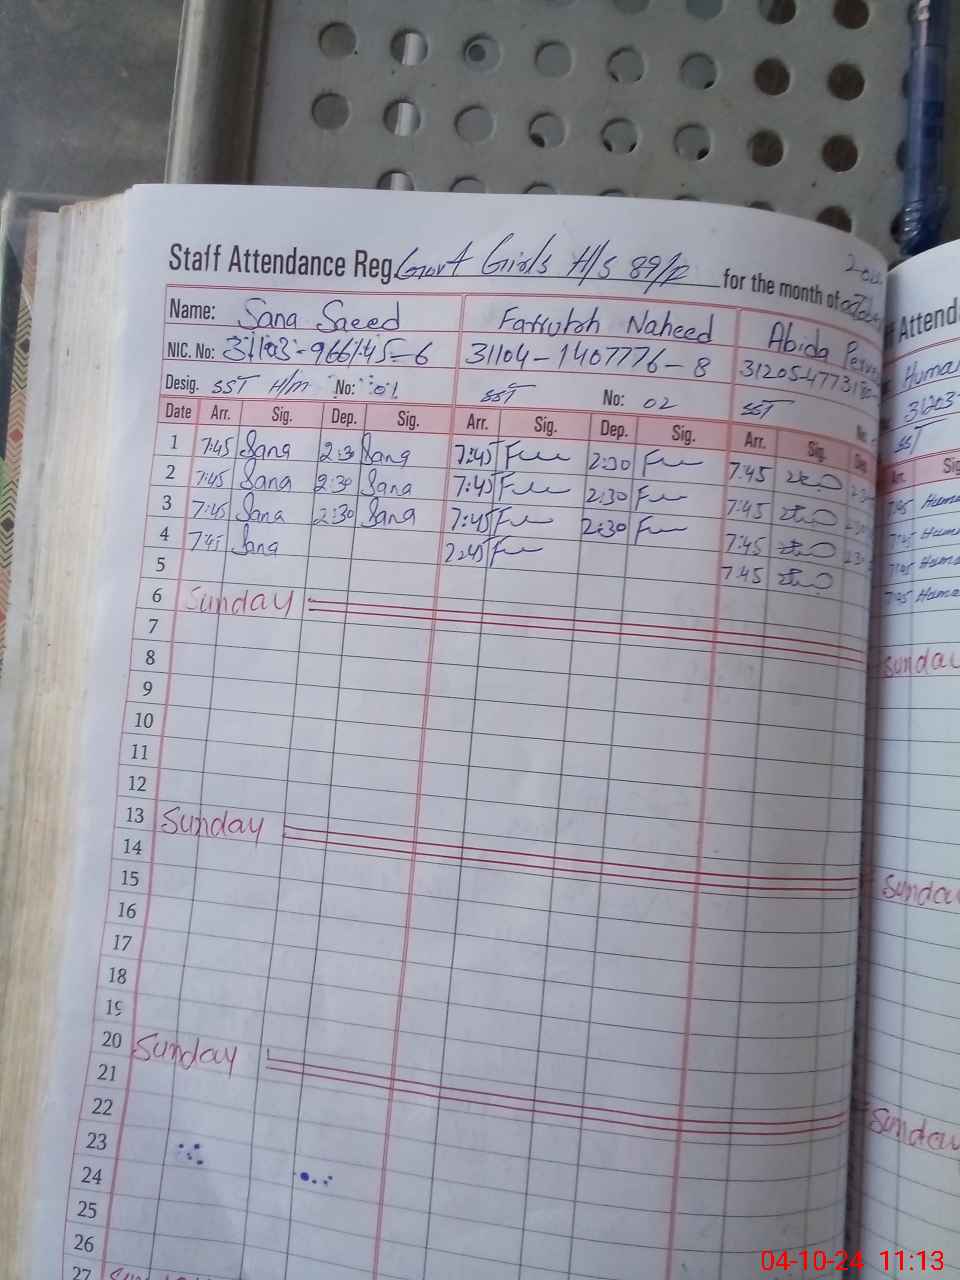 Staff Attendance Reg. Govt Girls H/S 89/P for the month of
Name: Sana Saeed Farrukh Naheed Abida
NIC. No: 31103-966145-6 31104-1407776-8 31205-4773180-
Desig. SST H/m No: 01 SST No: 02 SST
Date Arr. Sig. Dep. Sig. Arr. Sig. Dep. Sig. Arr. Sig. Dep.
1 7:45 Sana 2:30 Sana 7:45 2:30 7:45
2 7:45 Sana 2:30 Sana 7:45 2:30 7:45
3 7:45 Sana 2:30 Sana 7:45 2:30 7:45
4 7:45 Sana 7:45
5
6 Sunday
7
8
9
10
11
12
13 Sunday
14
15
16
17
18
19
20 Sunday
21
22
23
24
25
26
27
Attend
Huma
31203
SST
Sig
7:45 Huma
7:45 Huma
7:45 Huma
7:45 Huma
Sunday
Sunday
Sunday
04-10-24 11:13